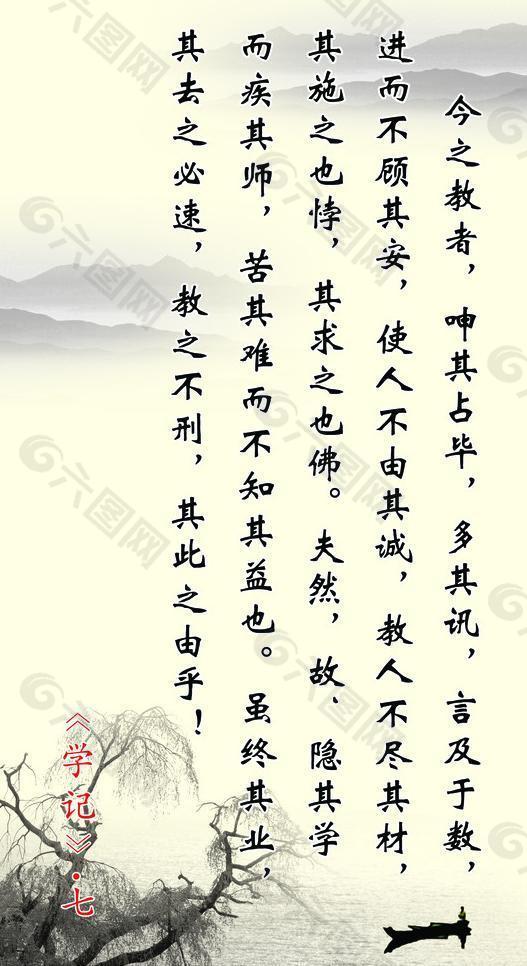 今之教者，呻其占毕，多其讯，言及于数，
进而不顾其安，使人不由其诚，教人不尽其材，
其施之也悖，其求之也佛。夫然，故、隐其学
而疾其师，苦其难而不知其益也。虽终其业，
其去之必速，教之不刑，其此之由乎！
《学记》·七
六图网